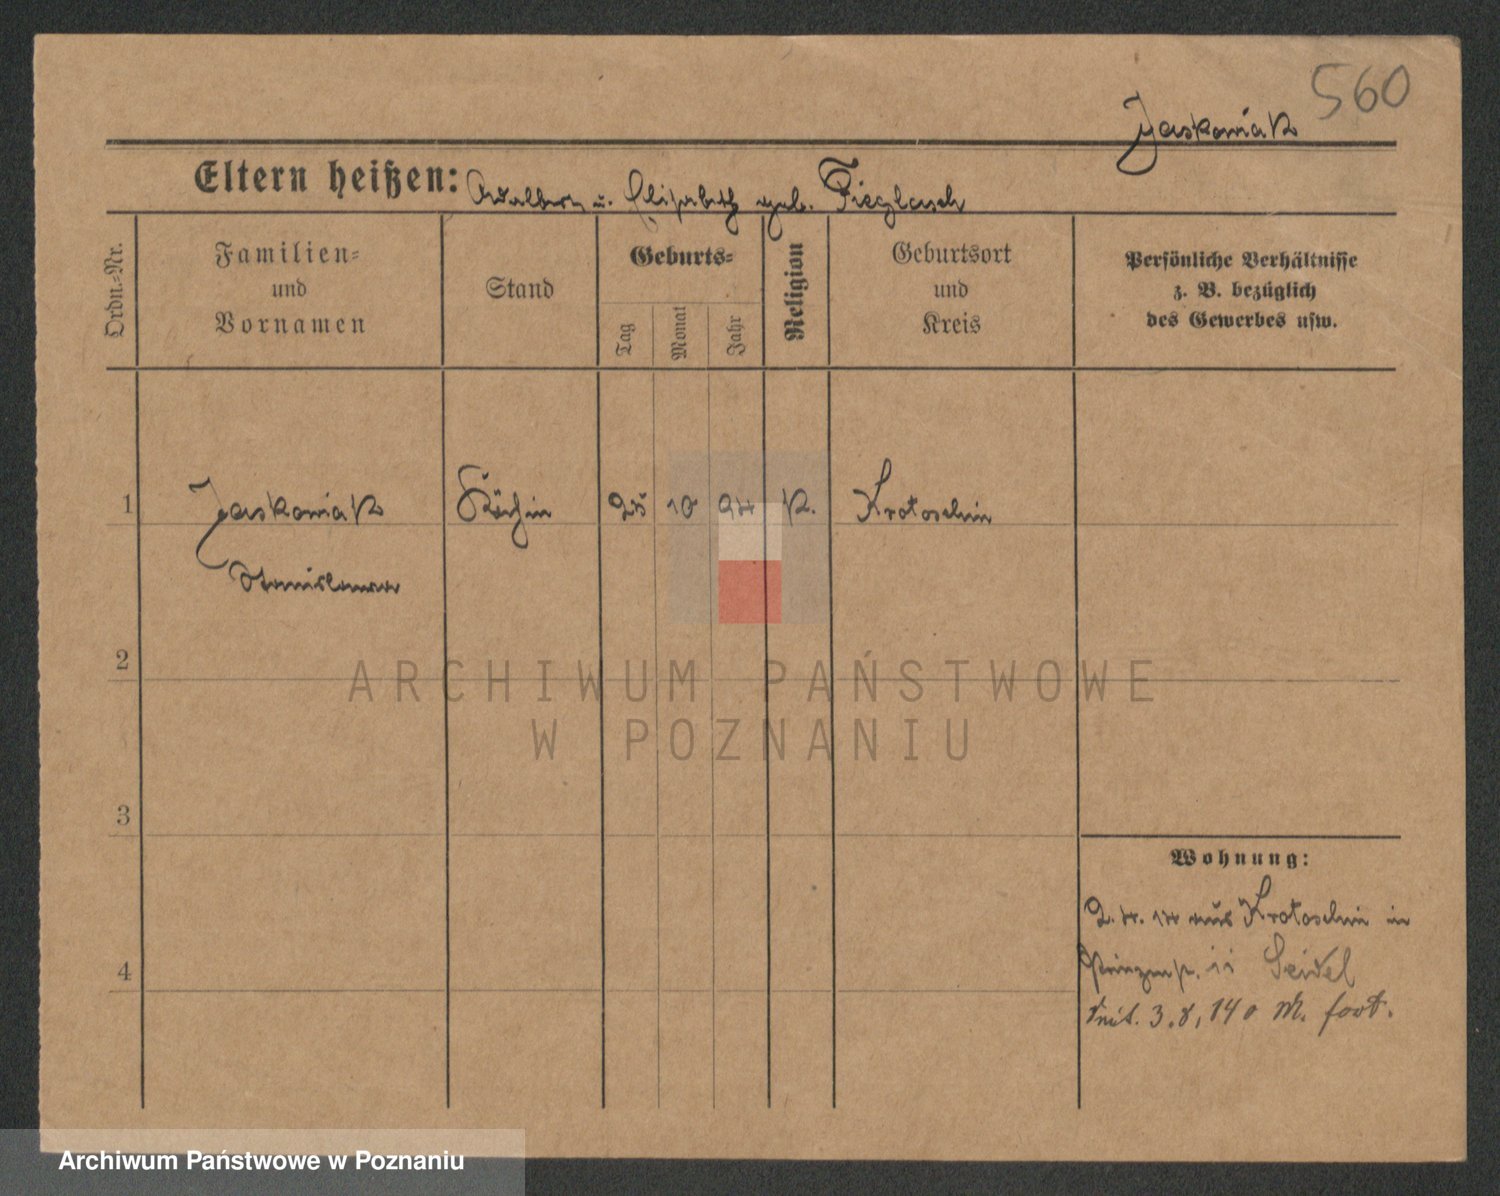 560
Jaskowiak
Eltern heißen: Adalbert u. Elisabeth geb. Fieglasch
Ordn.-Nr.
Familien-
und
Vornamen
Stand
Geburts-
Tag
Monat
Jahr
Religion
Geburtsort
und
Kreis
Persönliche Verhältnisse
z. B. bezüglich
des Gewerbes usw.
1
Jaskowiak Köchin 10 94 K. Krotoschin
Stanislawa
2
ARCHIWUM PAŃSTWOWE
W POZNANIU
3
Wohnung:
2. 4. 14 aus Krotoschin in
Prinzenstr. Seidel
4
seit 3.8.14 M. fort.
Archiwum Państwowe w Poznaniu